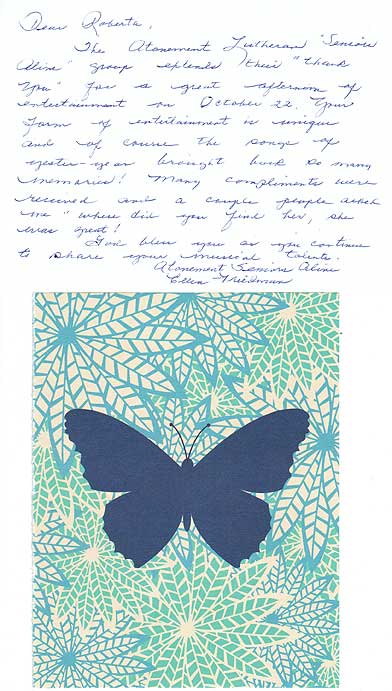 Dear Roberta,
The Atonement Lutheran "Seniors
Alive" group extends their "Thank
You" for a great afternoon of
entertainment on October 22. Your
form of entertainment is unique
and of course the songs of
yester-year brought back so many
memories! Many compliments were
received and a couple people asked
me "where did you find her, she
was great!
God bless you as you continue
to share your musical talents.
Atonement Seniors Alive
Ellen Friedman